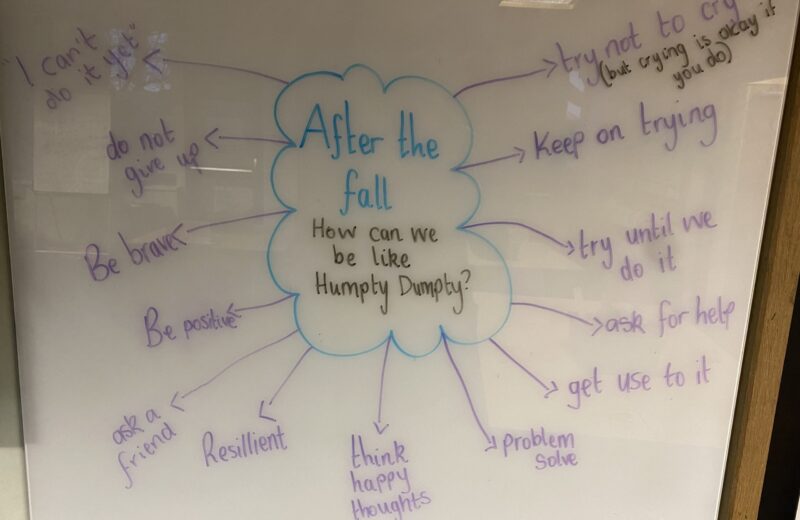 After the
fall
How can we
be like
Humpty Dumpty?
"I can't
do it yet"
do not
give up
Be brave
Be positive
ask a
friend
Resillient
think
happy
thoughts
problem
solve
get use to it
ask for help
try until we
do it
Keep on trying
try not to cry
(but crying is okay if
you do)